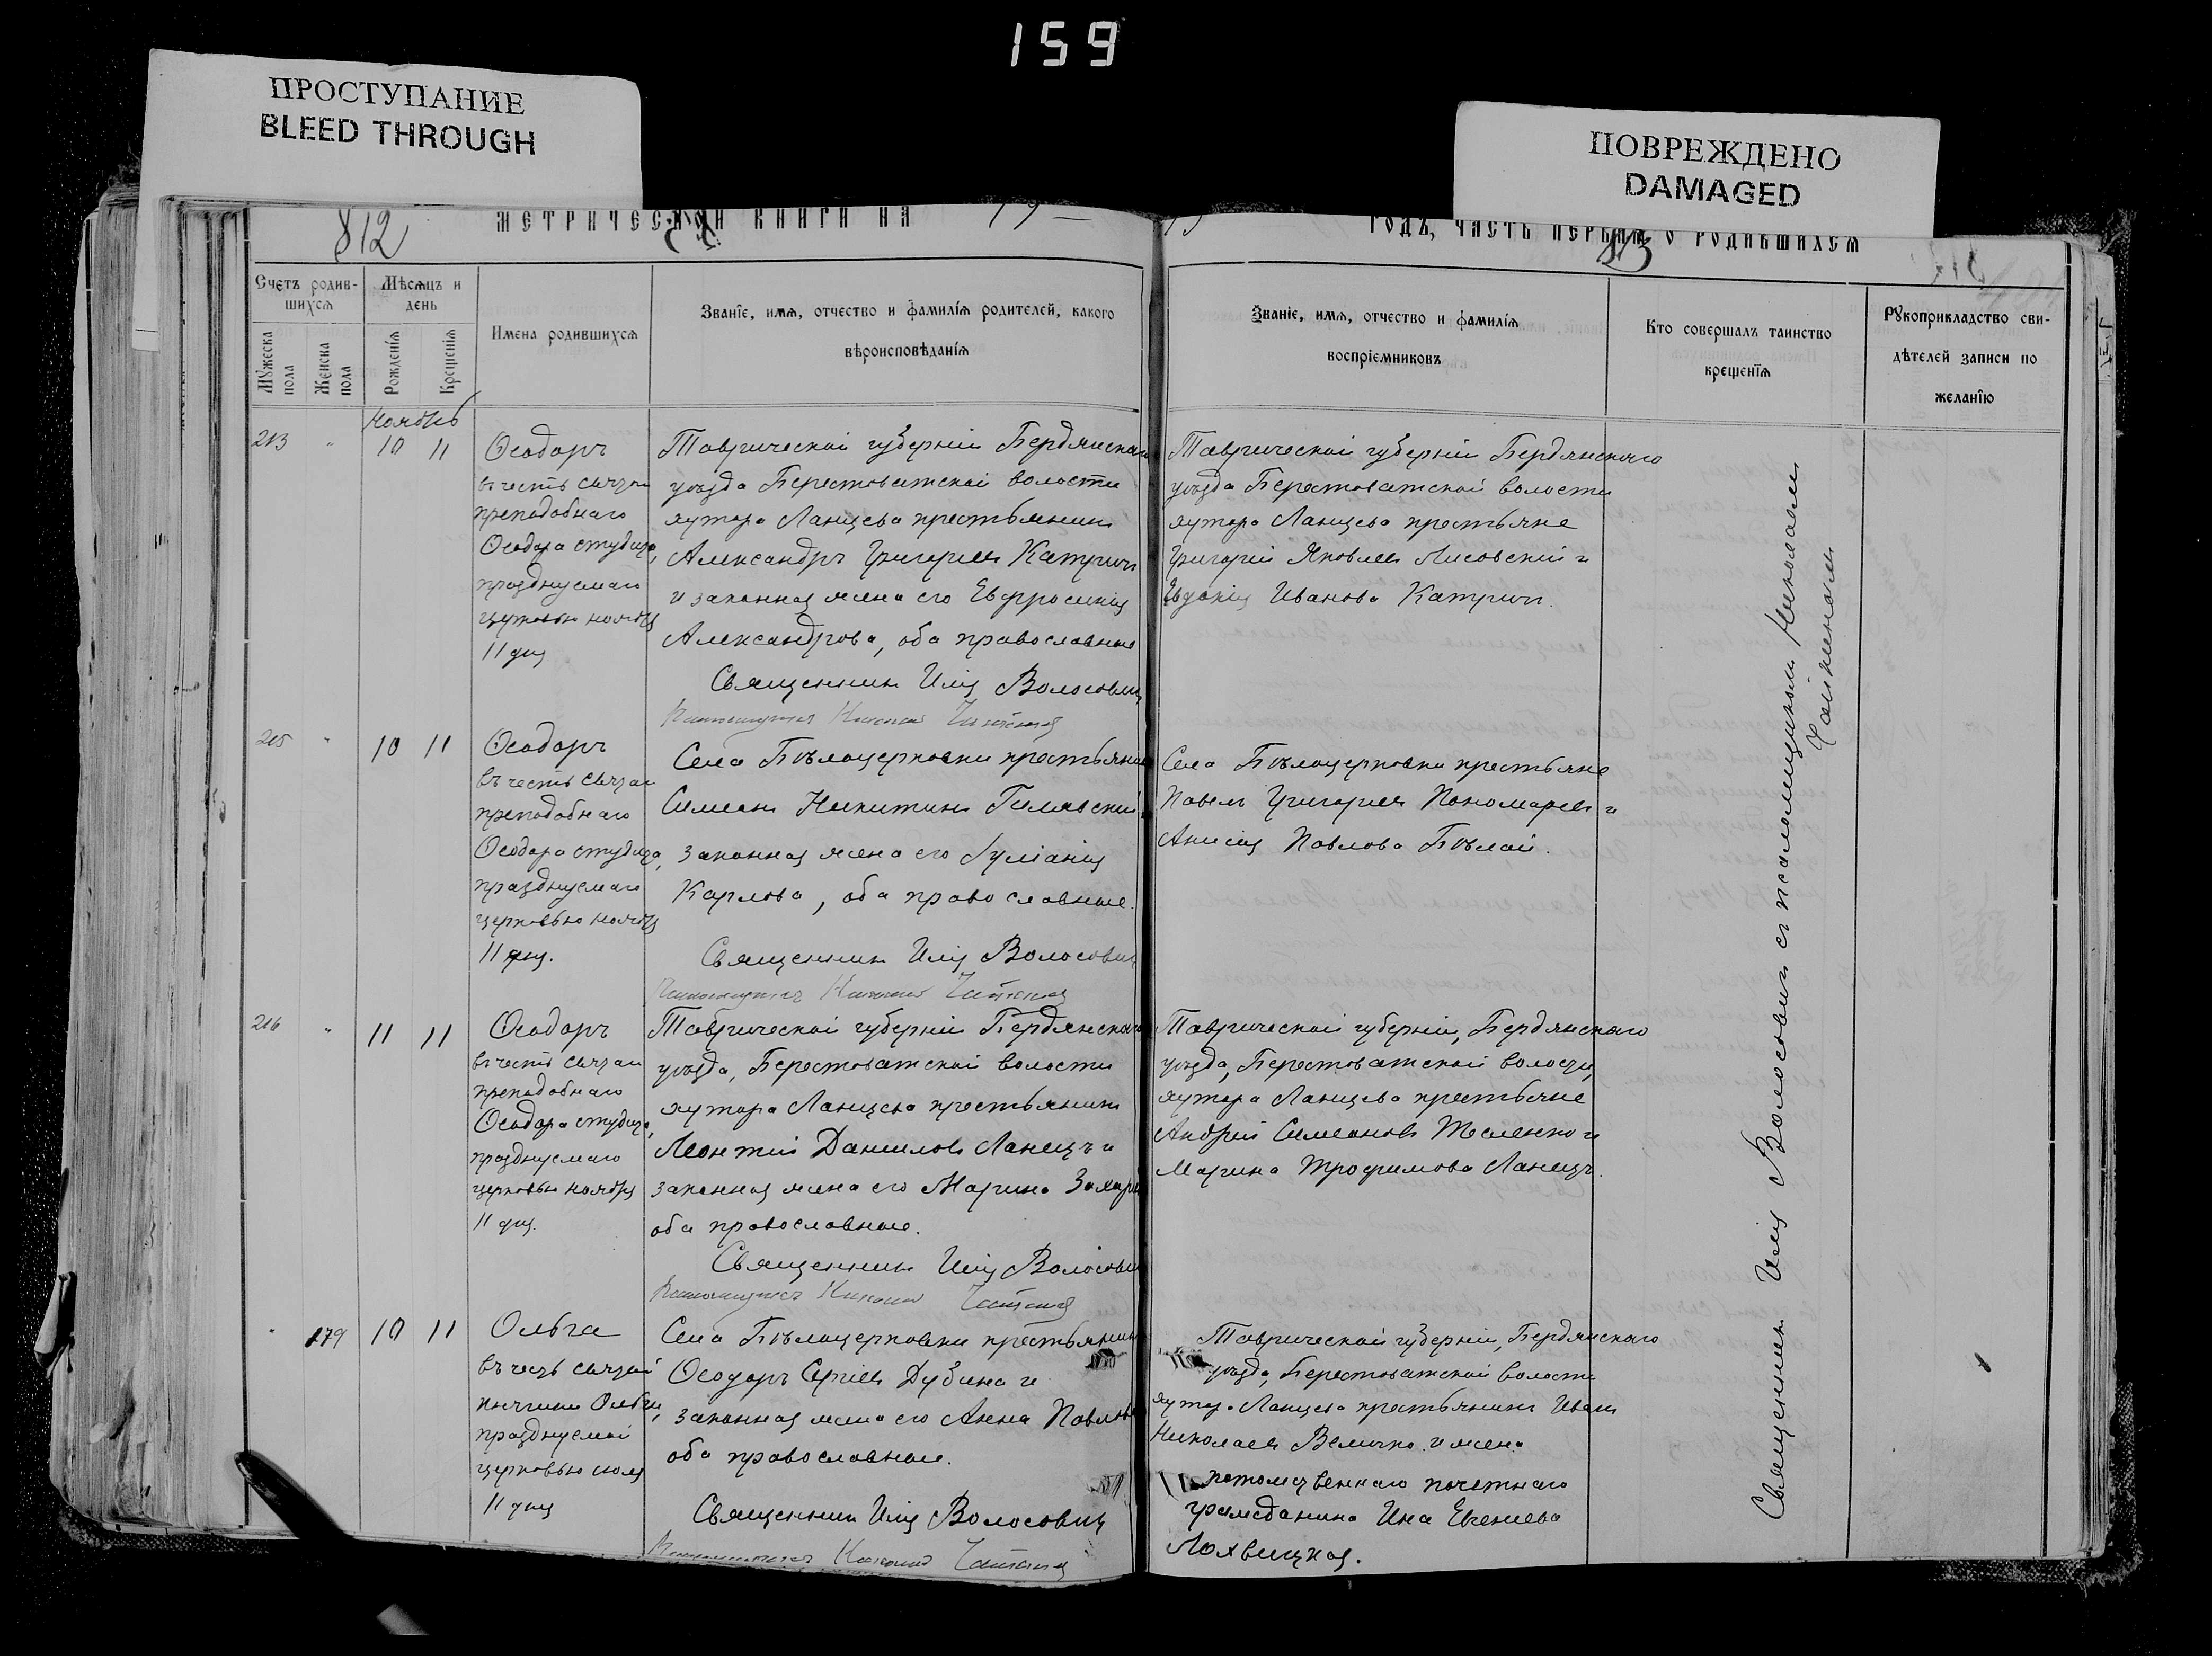 159
ПРОСТУПАНИЕ
BLEED THROUGH
ПОВРЕЖДЕНО
DAMAGED
812
МЕТРИЧЕСКОЙ КНИГИ НА 19
ГОДЪ, ЧАСТЬ ПЕРВАЯ О РОДИВШИХСЯ
813
Счетъ родив-
шихся
Мѣсяцъ и
день
Мужеска
пола
Женска
пола
Рожденія
Крещенія
Имена родившихся
Званіе, имя, отчество и фамилія родителей, какого
вѣроисповѣданія
Званіе, имя, отчество и фамилія
воспріемниковъ
Кто совершалъ таинство
крещенія
Рукоприкладство сви-
дѣтелей записи по
желанію
Ноябрь
213 " 10 11
Ѳеодоръ
въ честь святаго
преподобнаго
Ѳеодора студита,
празднуемаго
церковью ноября
11 дня
Таврической губерніи Бердянскаго
уѣзда Берестоватской волости
хутора Ланцева крестьянинъ
Александръ Григорьевъ Катричъ
и законная жена его Евфросинія
Александрова, оба православные
Священникъ Илія Волосовичъ
Псаломщикъ Николай
Таврической губерніи Бердянскаго
уѣзда Берестоватской волости
хутора Ланцева крестьяне
Григорій Яковлев Лисовскій и
Евдокія Иванова Катричъ.
215 " 10 11
Ѳеодоръ
въ честь святаго
преподобнаго
Ѳеодора студита,
празднуемаго
церковью ноября
11 дня.
Села Бѣлоцерковки крестьянинъ
Симеонъ Никитинъ
законная жена его Іуліанія
Карлова, оба православные.
Священникъ Илія Волосовичъ
Псаломщикъ Николай
Села Бѣлоцерковки крестьяне
Павелъ Григорьев Пономарев и
Анисія Павлова Бѣлай.
216 " 11 11
Ѳеодоръ
въ честь святаго
преподобнаго
Ѳеодора студита,
празднуемаго
церковью ноября
11 дня.
Таврической губерніи Бердянскаго
уѣзда, Берестоватской волости
хутора Ланцева крестьянинъ
Леонтій Даниловъ Ланецъ и
законная жена его Марина
оба православные.
Священникъ Илія Волосовичъ
Псаломщикъ Николай
Таврической губерніи, Бердянскаго
уѣзда, Берестоватской волости,
хутора Ланцева крестьяне
Андрей Симеоновъ Тесленко и
Марина Трофимова Ланецъ.
" 179 10 11
Ольга
въ честь святой
княгини Ольги,
празднуемой
церковью іюля
11 дня
Села Бѣлоцерковки крестьянинъ
Ѳеодоръ Сергіевъ Дубина и
законная жена его Анна Павлова
оба православные.
Священникъ Илія Волосовичъ
Псаломщикъ Николай
Таврической губерніи, Бердянскаго
уѣзда, Берестоватской волости
хутора Ланцева крестьянинъ Иванъ
Николаевъ Величко и жена
потомственнаго почетнаго
гражданина Інна Евгеніева
Лохвицкая.
Священникъ Илія Волосовичъ съ псаломщикомъ Николаемъ